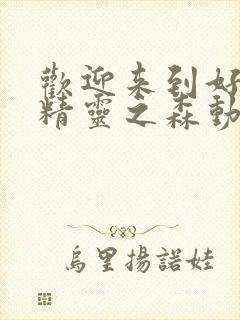 歡迎来到好
精靈之森動
烏里揚諾娃